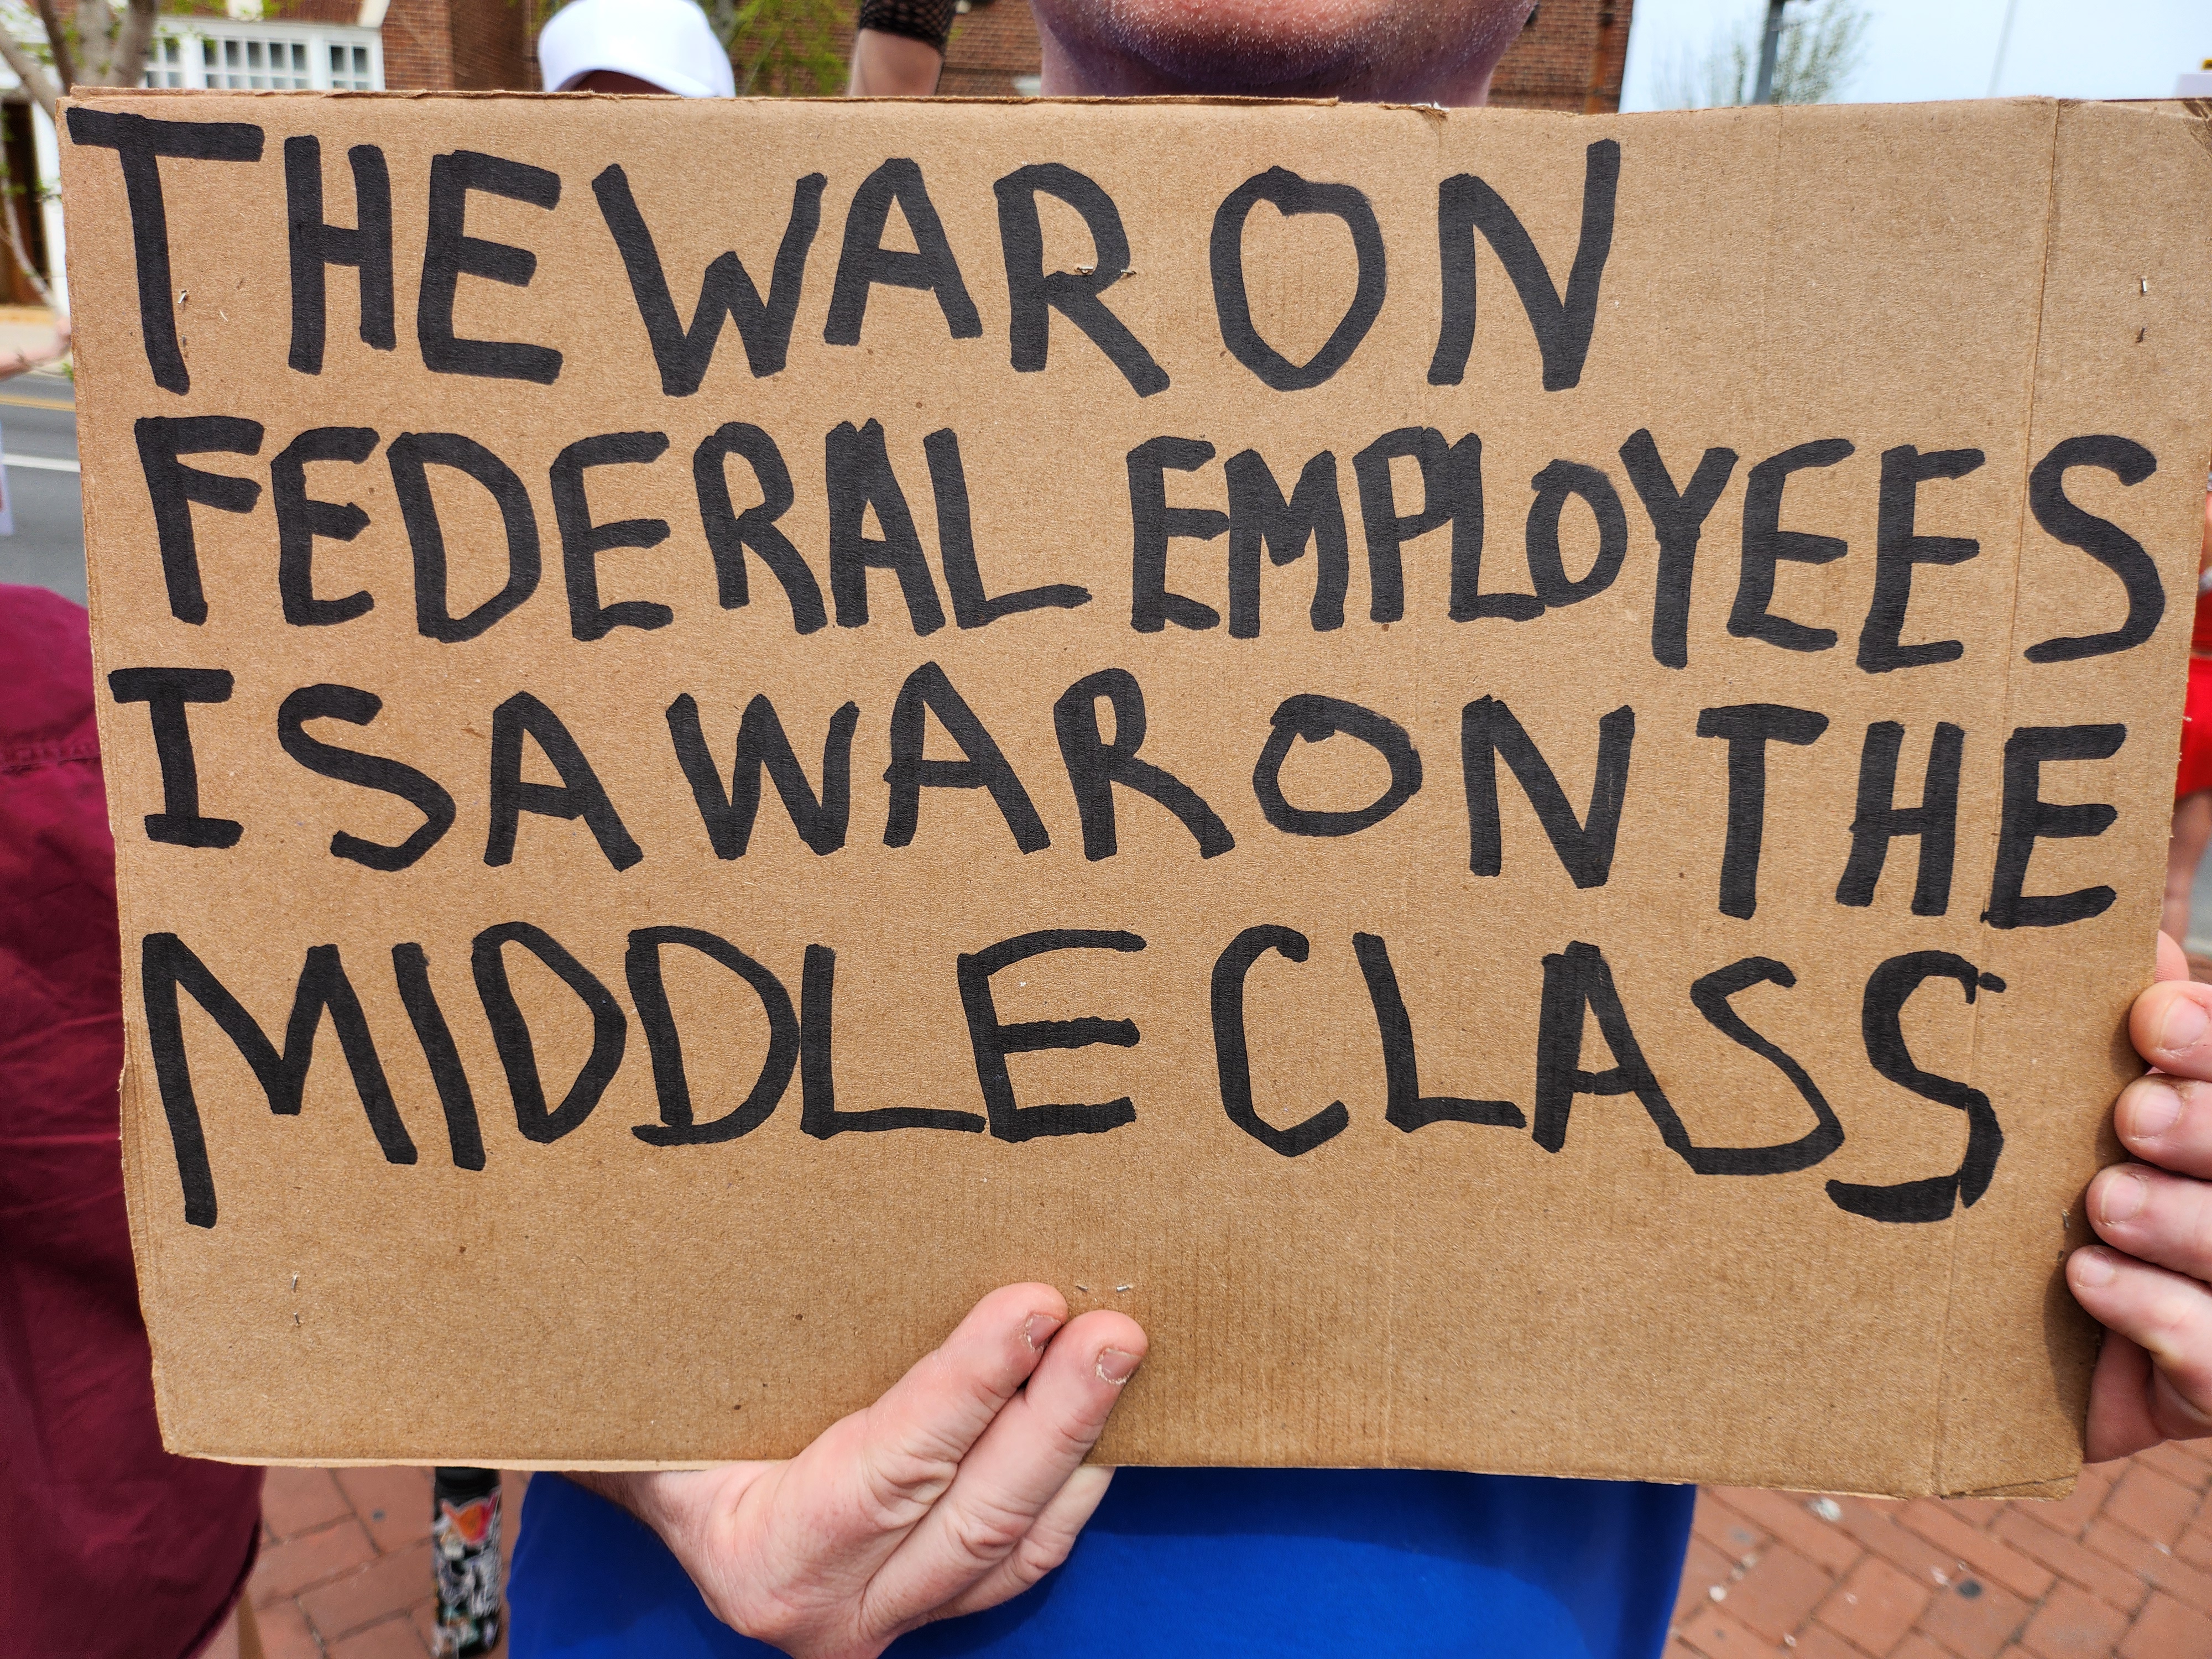 THE WAR ON
FEDERAL EMPLOYEES
IS A WAR ON THE
MIDDLE CLASS